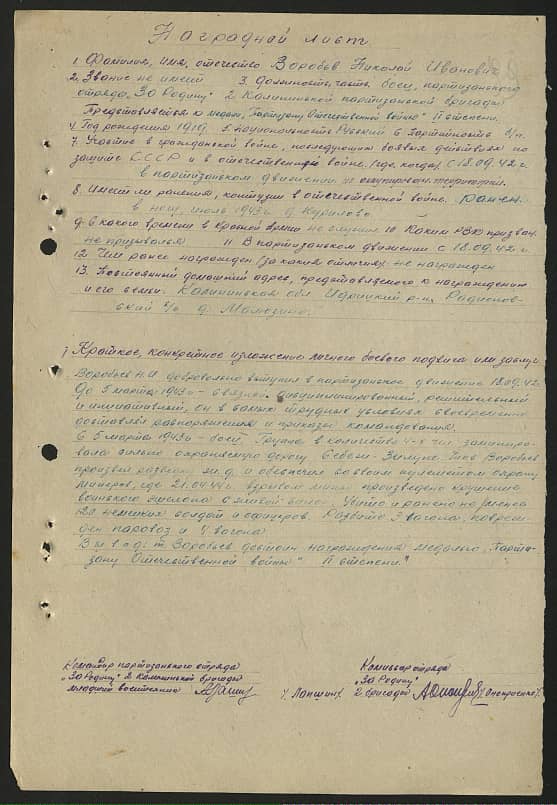 Наградной лист
1. Фамилия, имя, отчество Воробьев Николай Иванович
2. Звание не имеет 3. Должность, часть боец партизанского
отряда "За Родину" 2 Калининской партизанской бригады
Представляется к медали "Партизану Отечественной войны" II степени.
4 Год рождения 1919. 5 национальность Русский 6 Партийность б/п.
7. Участие в гражданской войне, последующих боевых действиях по
защите СССР и в отечественной войне (где, когда) С 18.09.42 г.
в партизанском движении на оккупирован. территории.
8. Имеет ли ранения, контузии в отечественной войне. ранен
в ногу июль 1943 г. д. Курилово
9. С какого времени в Красной армии не служил 10 Каким РВК призван
не призывался 11 В партизанском движении с 18.09.42 г.
12 Чем ранее награжден (за какие отличия) не награжден
13. Постоянный домашний адрес, представляемого к награждению
и его семьи: Калининская обл Идрицкий р-н, Родионов-
ский с/с д. Мамозино.
Краткое, конкретное изложение личного боевого подвига или заслуг
Воробьев Н.И. добровольно вступил в партизанское движение 18.09.42
До 5 марта 1943 г - связной. Дисциплинированный, решительный
и инициативный, он в самых трудных условиях своевременно
доставлял распоряжения и приказы командования.
С 5 марта 1943 г - боец. Группа в количестве 4-х чел. заминиро-
вала сильно охраняемую дорогу Тов Воробьев
произвел разведку ж.д. и обеспечил со своим пулеметом охрану
минеров, где 21.04.44 г. взрывом мины произведено крушение
воинского эшелона с живой силой. Убито и ранено не менее
120 немецких солдат и офицеров. Разбито 3 вагона, повреж-
ден паровоз и вагона.
Воробьев достоин награждения медалью "Парти-
зану Отечественной войны" II степени."
Командир партизанского отряда
"За Родину" 2 Калининской бригады
младший воентехник
/Лапшин/
Комиссар отряда
"За Родину"
2 бригады